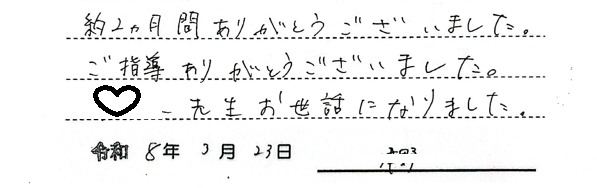 約2ヵ月間ありがとうございました。
ご指導ありがとうございました。
先生お世話になりました。
令和 8年 3月 23日